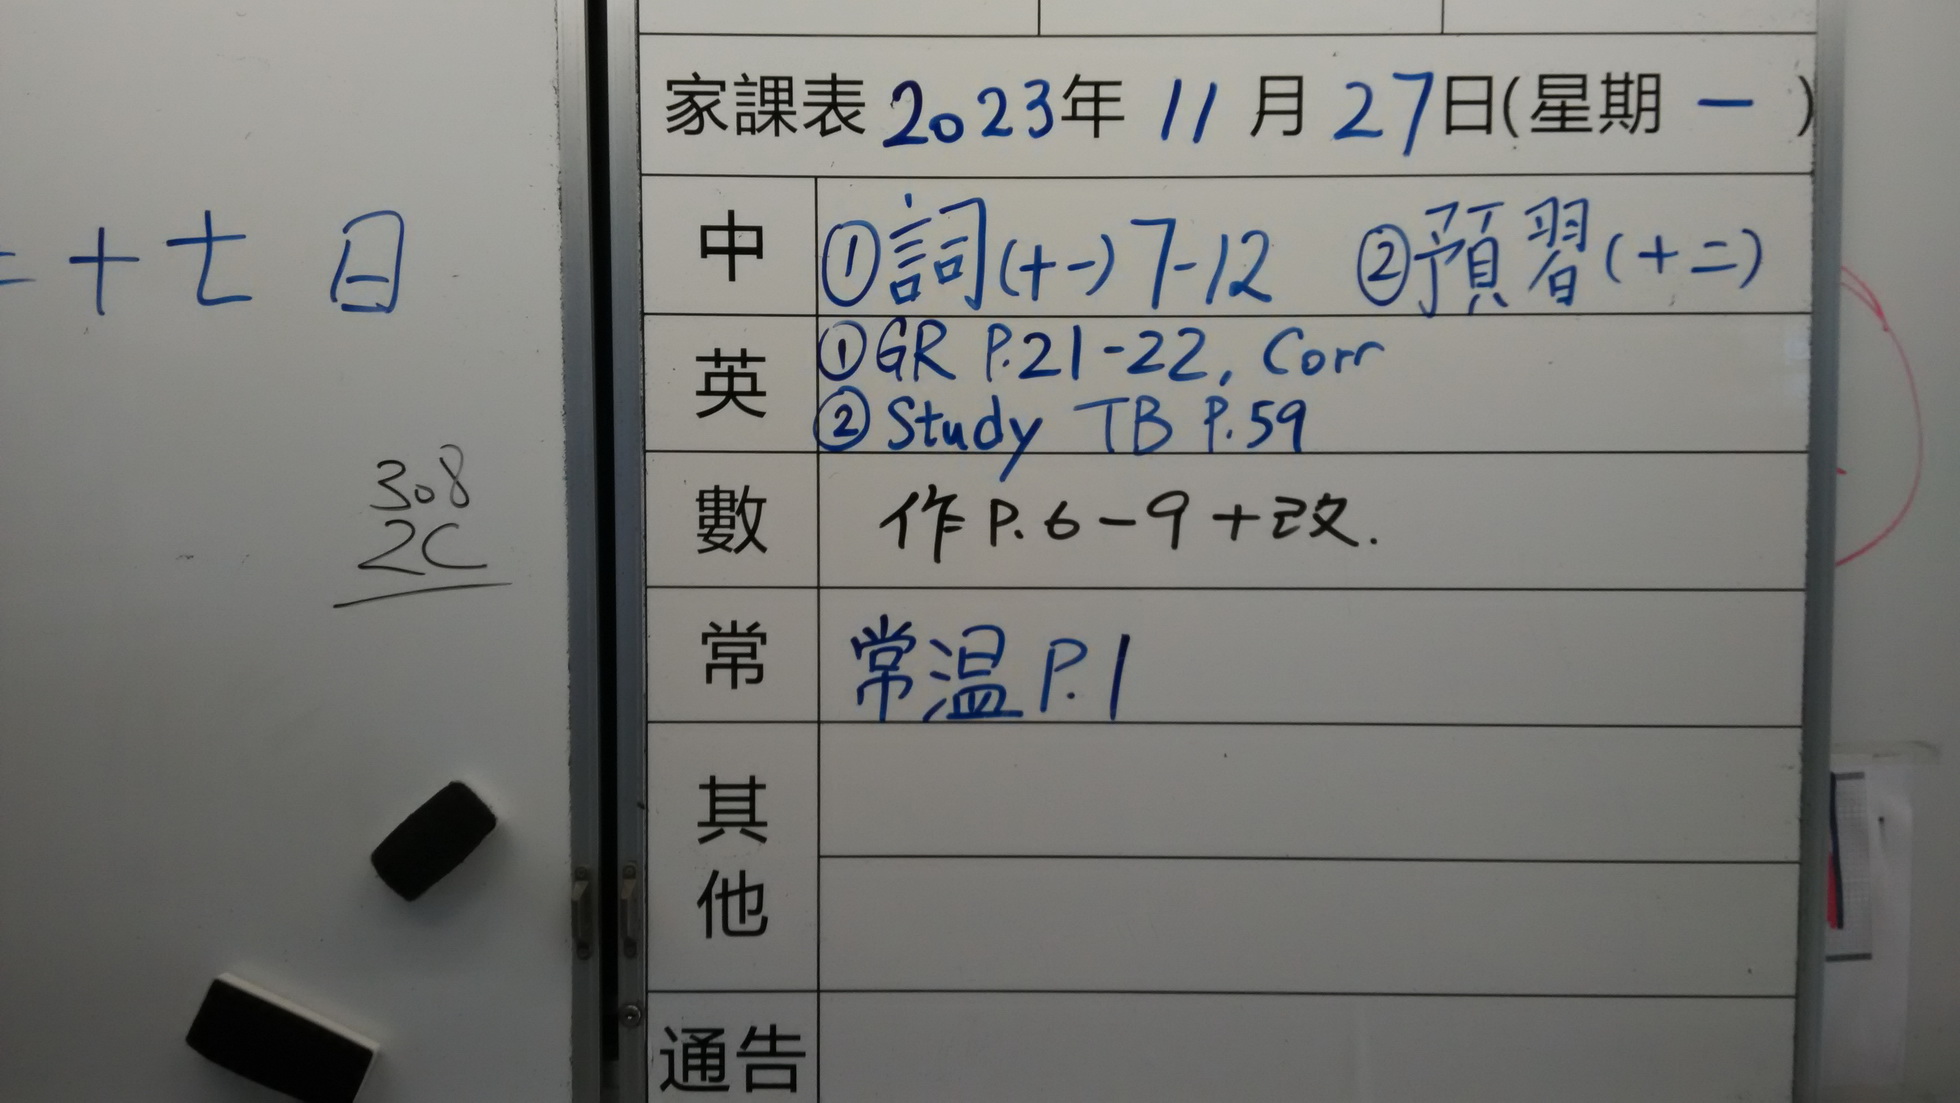 二十七日
308
2C
家課表 2023年 11 月 27日(星期 一 )
中 ①詞(十一) 7-12 ②預習(十二)
英 ①GR P.21-22, Corr
②Study TB P.59
數 作 P.6-9+改.
常 常温 P.1
其他
通告